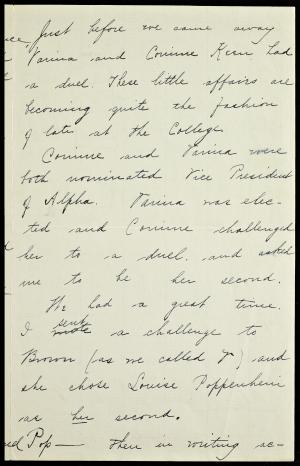 Just before we came away
Varina and Corinne Keen had
a duel. These little affairs are
becoming quite the fashion
of late at the College
Corinne and Varina were
both nominated Vice President
of Alpha. Varina was elec-
ted and Corinne challenged
her to a duel, and asked
me to be her second.
We had a great time.
sent
I wrote a challenge to
Brown (as we called V) and
she chose Louise Poppenheim
as her second.
Pop— then in writing ac-